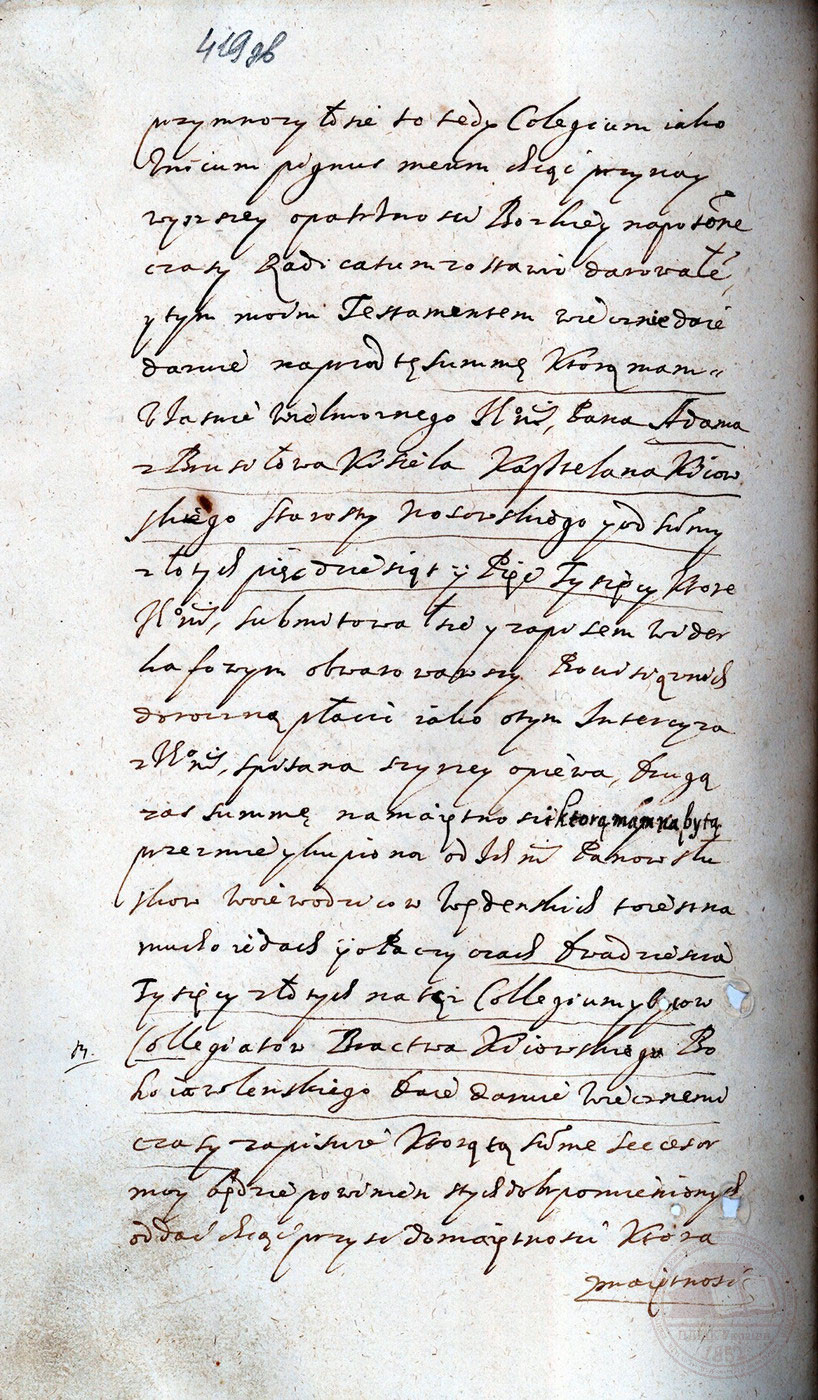 419 зв
przymnozyłosie to tedy Colegium iako
Unicum pignus meum chcąc przy nay
wyzszey opatrznosci Bozkiey napotomne
czasy Radicatum zostawić darowałē,
y tym moim Testamentem wiecznie daie
daruie naprzod tę summę Ktorą mam
Własnie Wielmoznego Pana Adama
z Brusiłowa Kisiela Kasztelana Kiow
skiego Starosty Nosowskiego y od summy
złotych pięcdziesiąt y Pięć Tysięcy Ktore
submitowałsie y zapisem wider
kafowym obwarowawszy
doroczną płacić iako otym Intercyza
spisana szyrzey opiewa, Drugą
zas summę namaiętnosci ktorą mam nabytą
przezmnie y kupiona od Panow Słu
szkow Woiewodzicow Węndenskich toiestna
Dwadziescia
Tysięcy złotych natęż Collegium y braciow
Collegiatow Bractwa Kiowskiego Bo
hoiawlenskiego daie daruie Wiecznemi
czasy zapisuie Ktorą tą summe Seccesor
moy będzie powinien stych dobr pomienionych
oddać chcąc przysć domaiętnosci Ktora
maiętnosć